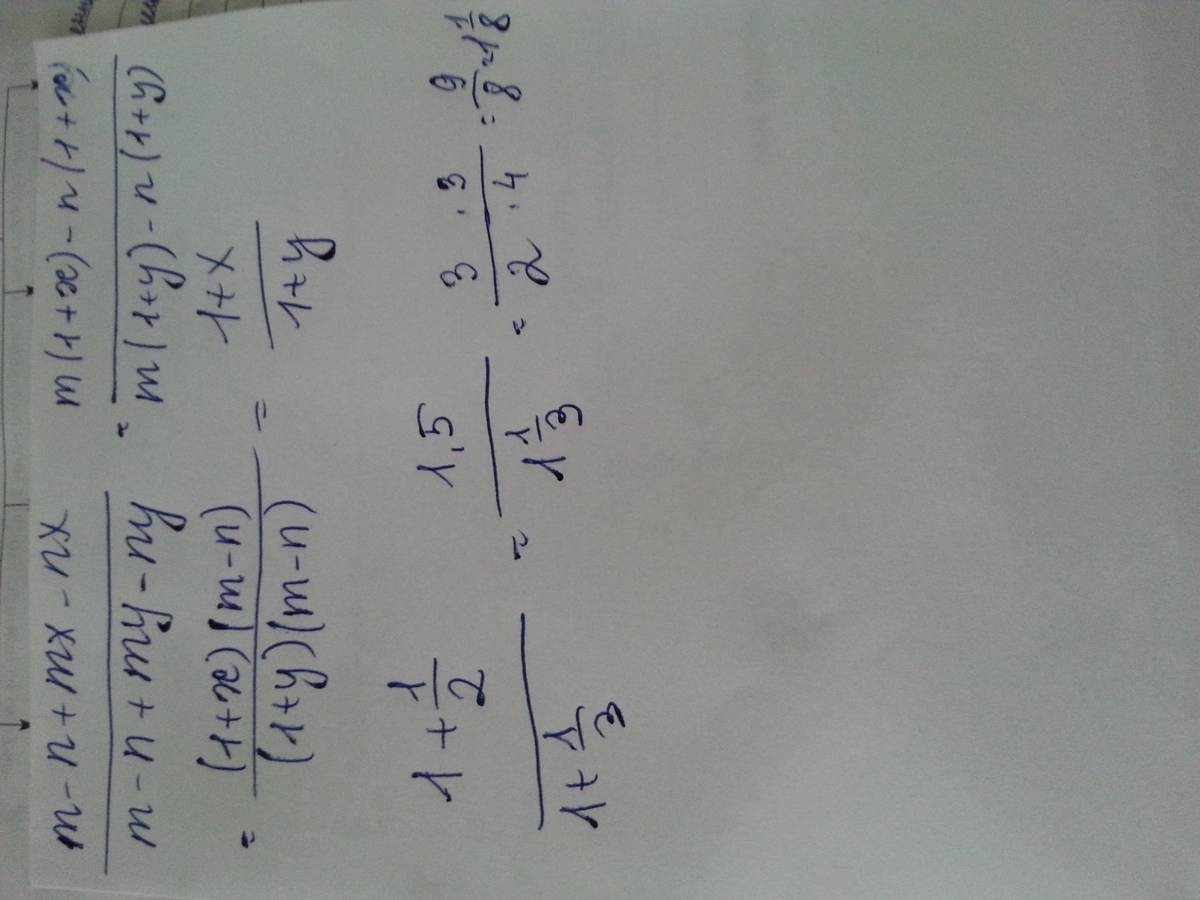 (m-n+mx-nx)/(m-n+my-ny) = (m(1+x)-n(1+x))/(m(1+y)-n(1+y))
= ((1+x)(m-n))/((1+y)(m-n)) = (1+x)/(1+y)
(1+1/2)/(1+1/3) = 1,5/(1 1/3) = (3·3)/(2·4) = 9/8 = 1 1/8